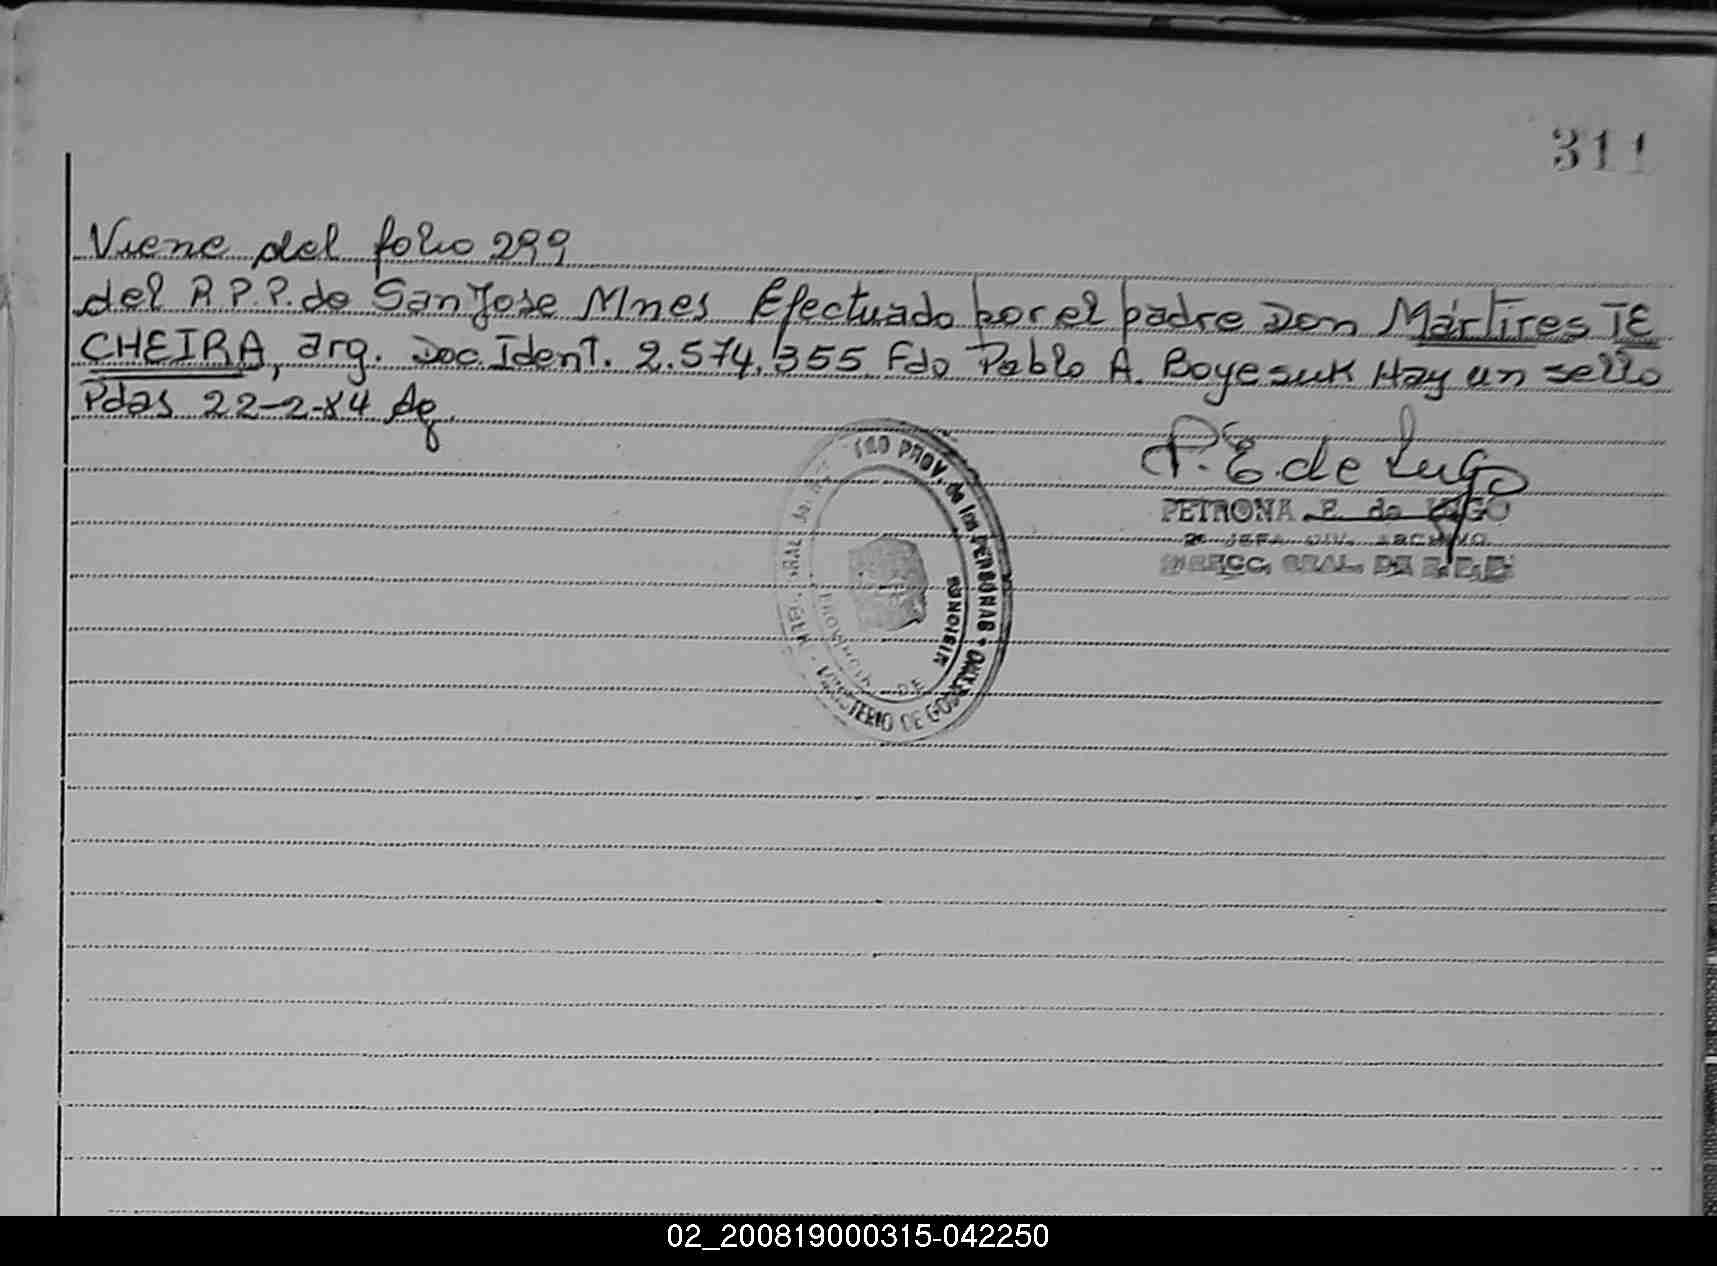 311
Viene del folio 299
del R.P.P. de San Jose Mnes Efectuado por el padre Don Mártires TE
CHEIRA, arg. Doc. Ident. 2.574.355 Fdo Pablo A. Boyesuk Hay un sello
Pdas 22-2-84
P. E. de Lugo
PETRONA E. de LUGO
2º JEFA DIV. ARCHIVO
DIRECC. GRAL. DE R.P.P.
PROV. de las PERSONAS • MINISTERIO DE GOBIERNO
PROVINCIA DE MISIONES
02_200819000315-042250